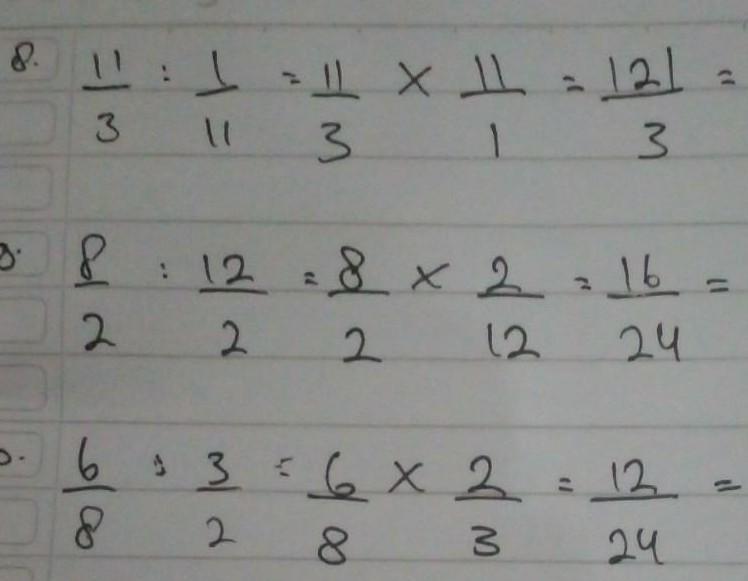 8. 11/3 : 1/11 = 11/3 × 11/1 = 121/3 =
8/2 : 12/2 = 8/2 × 2/12 = 16/24 =
6/8 : 3/2 = 6/8 × 2/3 = 12/24 =